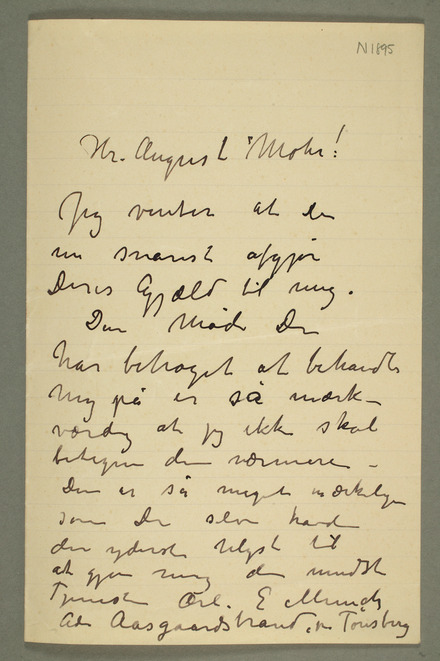 N 1895
Hr. August Mohr!
Jeg venter at De
nu snarest afgjør
Deres Gjæld til mig.
Den Måde De
har behaget at behandle
mig på er så mærk-
værdig at jeg ikke skal
betegne den nærmere –
Den er så meget mærkeligere
som De selv havde
den yderste
at gjøre mig den mindste
Tjeneste Ærb. E Munch
Adr Aasgaardstrand, pr Tønsberg